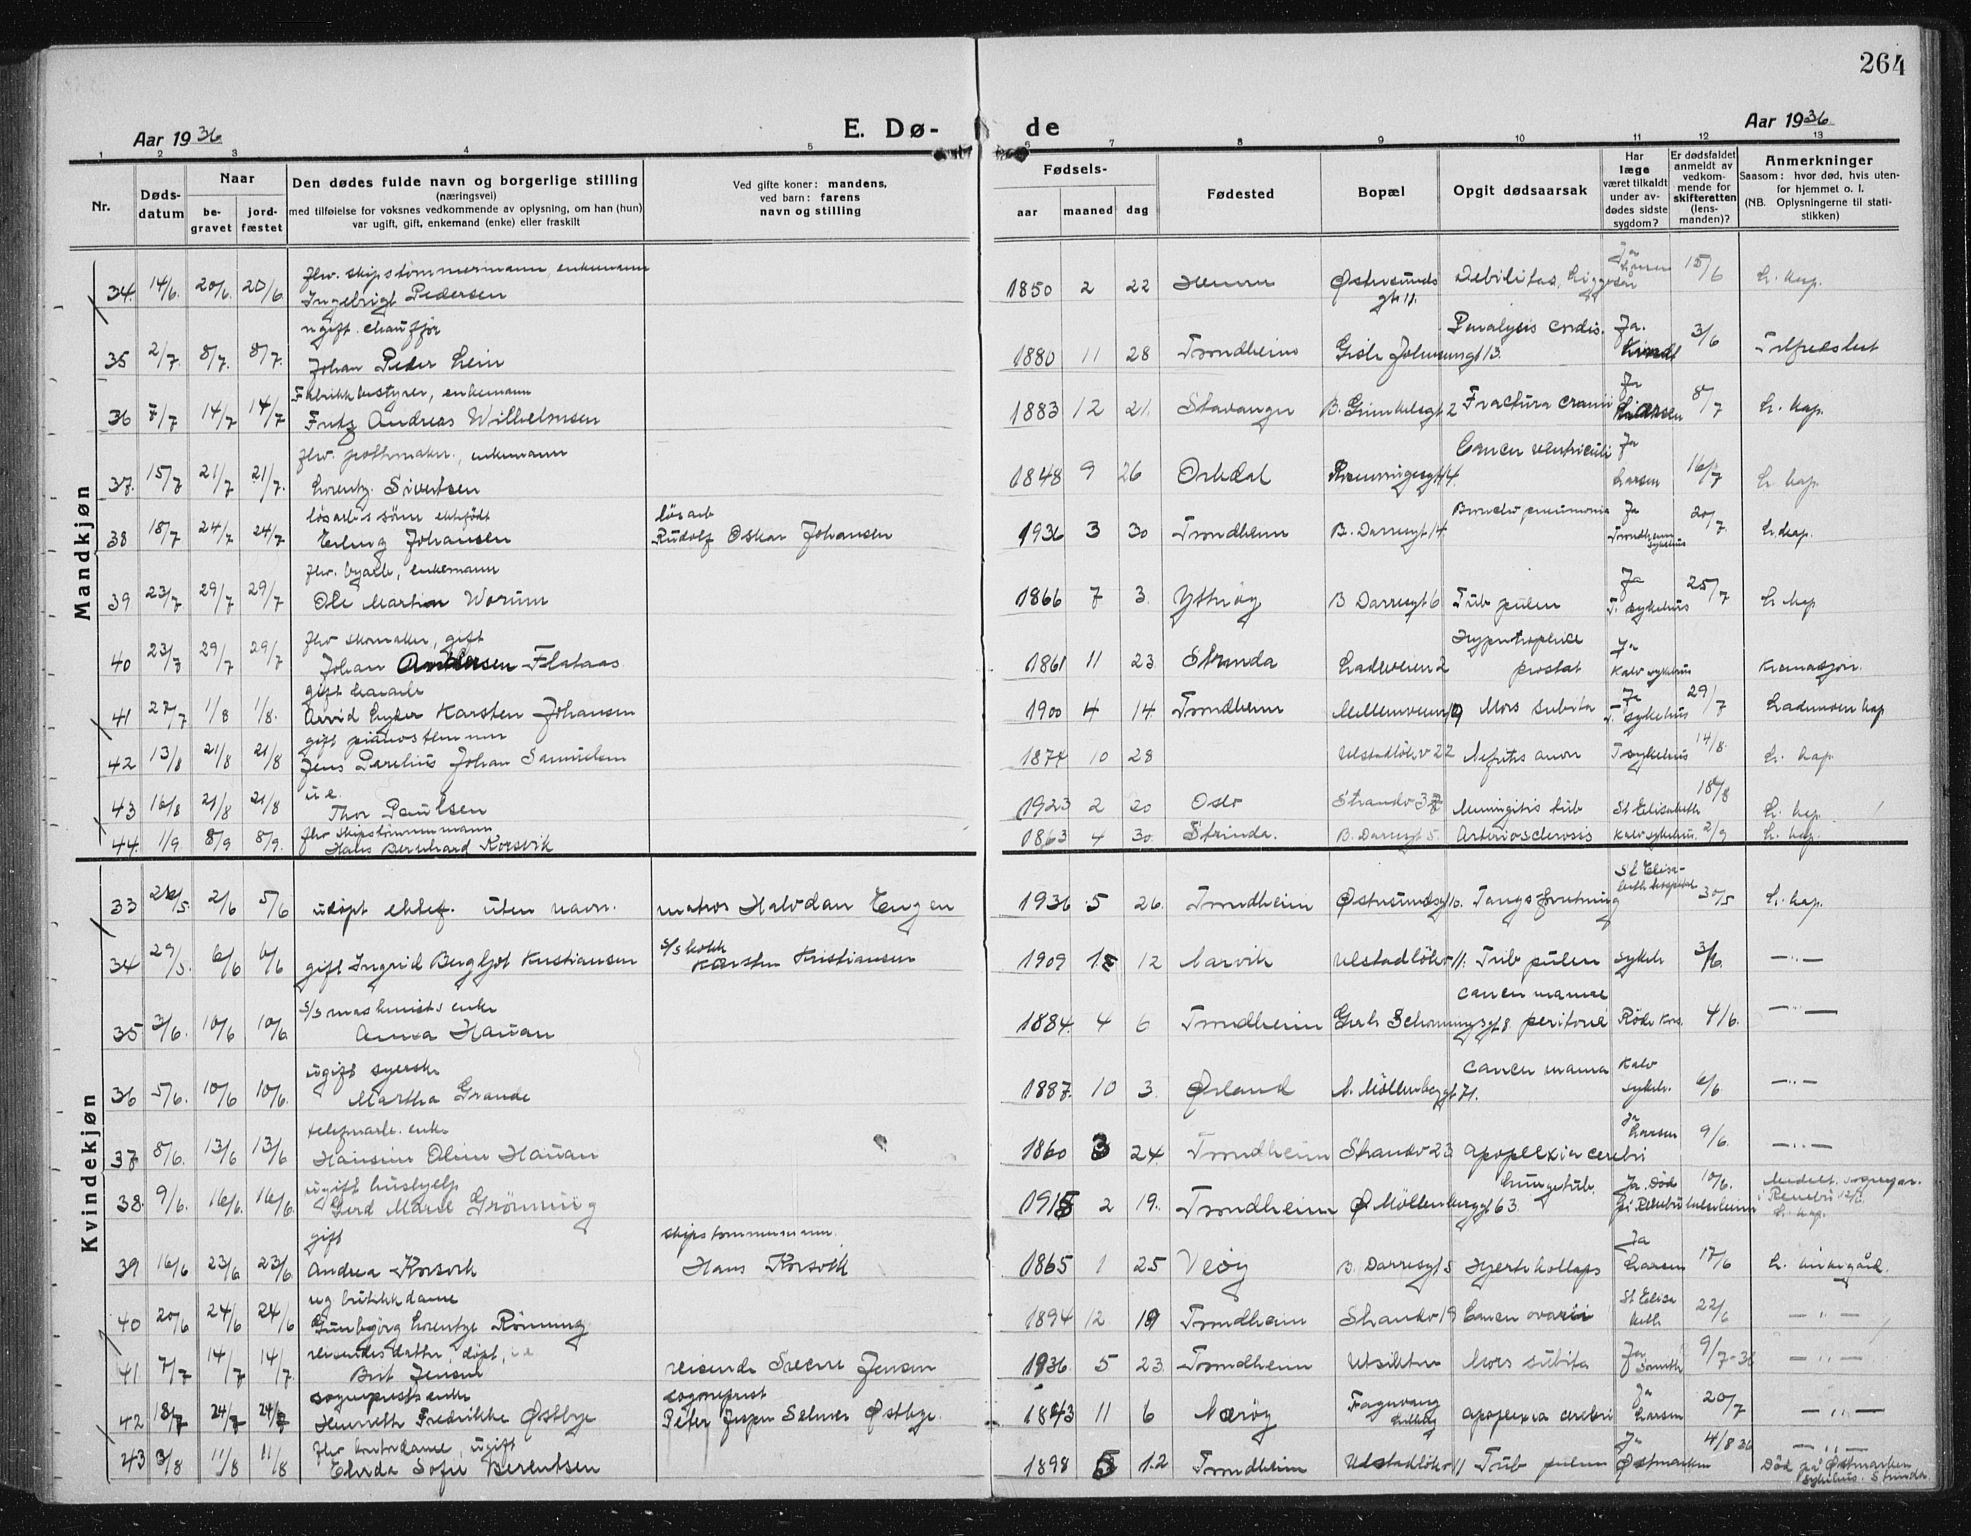 264
Aar 1936
E. Dø-
de
Aar 1936
1 2 3 4 5 6 7 8 9 10 11 12 13
Nr.
Døds-
datum
Naar
be-
gravet
jord-
fæstet
Den dødes fulde navn og borgerlige stilling
(næringsvei)
med tilføielse for voksnes vedkommende av oplysning, om han (hun)
var ugift, gift, enkemand (enke) eller fraskilt
Ved gifte koner: mandens,
ved barn: farens
navn og stilling
Fødsels-
aar
maaned
dag
Fødested
Bopæl
Opgit dødsaarsak
Har
læge
været tilkaldt
under av-
dødes sidste
sygdom?
Er dødsfaldet
anmeldt av
vedkom-
mende for
skifteretten
(lens-
manden)?
Anmerkninger
Saasom: hvor død, hvis uten-
for hjemmet o. l.
(NB. Oplysningerne til stati-
stikken)
Mandkjøn
fhv. skipstømmermann enkemann
34. 14/6. 20/6. 20/6. Ingebrigt Pedersen 1850 2 22 Hemne Debilitas Ja 15/6 L. kap.
ugift. chauffør
35 2/7. 8/7. 8/7. Johan Peder Lein 1880 11 28 Trondheim Paralysis cordis. Ja. 3/6
Fabrikkbestyrer, enkemann
36 14/7 14/7 Fritz Andreas Wilhelmsen 1883 12 21. Stavanger Fractura cranii Ja Larsen 8/7 L. kap.
fhv. enkemann
37. 15/7 21/7 21/7. Lorentz Sivertsen 1848 9 26 Orkdal Cancer ventriculi Ja Larsen 16/7 L. kap.
løsarb. søn ektefødt løsarb
38 18/7 24/7 24/7. Erling Johansen Rudolf Oskar Johansen 1936 3 30 Trondheim B. Darresgt 14. Ja Trondheim sykehus 20/7 L. kap.
fhv. byarb, enkemann
39 23/7 29/7 29/7 Ole Martin Worum 1866 7 3. Ytterøy B Darresgt 6 Tub pulm Ja T. sykehus 25/7 L. kap
fhv skomaker, gift
40 23/7 29/7 29/7 Johan Andersen Flataas 1861 11 23 Strinda Ladeveien 2 prostat Ja Kalv sykehus kremasjon.
gift
41 27/7 1/8 1/8. Arvid Karsten Johansen 1900 4 14 Trondheim Mors subita Ja T. sykehus 29/7 Lademoen kap
gift pianostemmer
42 13/8 21/8 21/8 Jens Parelius Johan Samuelsen 1874 10 28 Ulstadløkv 22 T sykehus 14/8. L. kap.
u e.
43 16/8 21/8 21/8 Thor Paulsen 1923 2 20 Oslo Meningitis tub St Elisabeth 18/8 L. kap.
fhv skipstømmermann
44. 1/9. 8/9 8/9. Hans Bernhard Korsvik 1863 4 30. Strinda. B. Darresgt 5. Arteriosclerosis Kalv sykehus. 2/9 L. kap.
Kvindekjøn
33 2/6 5/6 udøpt ektef. uten navn. matros Halvdan Engen 1936 5 26. Trondheim St Elisa- 30/5 L. kap.
34 29/5 6/6 6/6 gift Ingrid Bergljot Kristiansen s/s kokk Karsten Kristiansen 1909 12 Narvik Ulstadløkv 11. Tub pulm sykeh — „ —
s/s maskinists enke
35 3/6. 10/6 10/6. Anna Hauan 1884. 4 6 Trondheim Gerh Schøningsgt 8. cancer mamae peritonei Røde Kors. 4/6. — „ —
ugift syerske
36 5/6. 10/6 10/6. Martha Grande 1887. 10 3. Ørland N. Möllenberggt 71. cancer mama Kalv sykeh. 6/6 — „ —
telefonarb. enke
37 8/6. 13/6 13/6 Hansine Oline Hauan 1860 3 24. Trondheim Strandv 23 apoplexia cerebri Ja Larsen 9/6. — „ —
ugift hushjelp
38. 9/6. 16/6. 16/6. Gerd Marie Grønning 1915 2 19. Trondheim Ø Möllenberggt 63. Lungetub. Ja. Død 10/6. L. kap.
gift skipstømmermann.
39 16/6 23/6 23/6. Andrea Korsvik Hans Korsvik 1865 1 25 Veøy B. Darresgt 5 Hjertekollaps Ja Larsen 17/6 L. kirkegård.
ug butikkdame
40 20/6 24/6 24/6 Gunbjørg Lorentze Rønning 1894 12 19 Trondheim Strandv 19 Cancer ovarii St Elisa beth 22/6 — „ —
reisendes datter, døpt,
41. 7/7 14/7 14/7. Brit Jensen reisende Sverre Jensen 1936 5 23. Trondheim Utsikten Mors subita Ja 9/7-36 — „ —
sogneprests enke sogneprest
42 18/7 24/7 24/7 Henriette Fredrikke Østbye Peter Jesper Selmer Østbye. 1843 11 6 Nærøy apoplexia cerebri Ja Larsen 20/7 — „ —
fhv kontordame, ugift
43 3/8 11/8 11/8 Elvida Sofie Berentsen 1898 5 12 Trondheim Ulstadløkv 11 Tub pulm Ja Østmarken 4/8 36 — „ —
Död på Østmarken
sykehus. Strinda